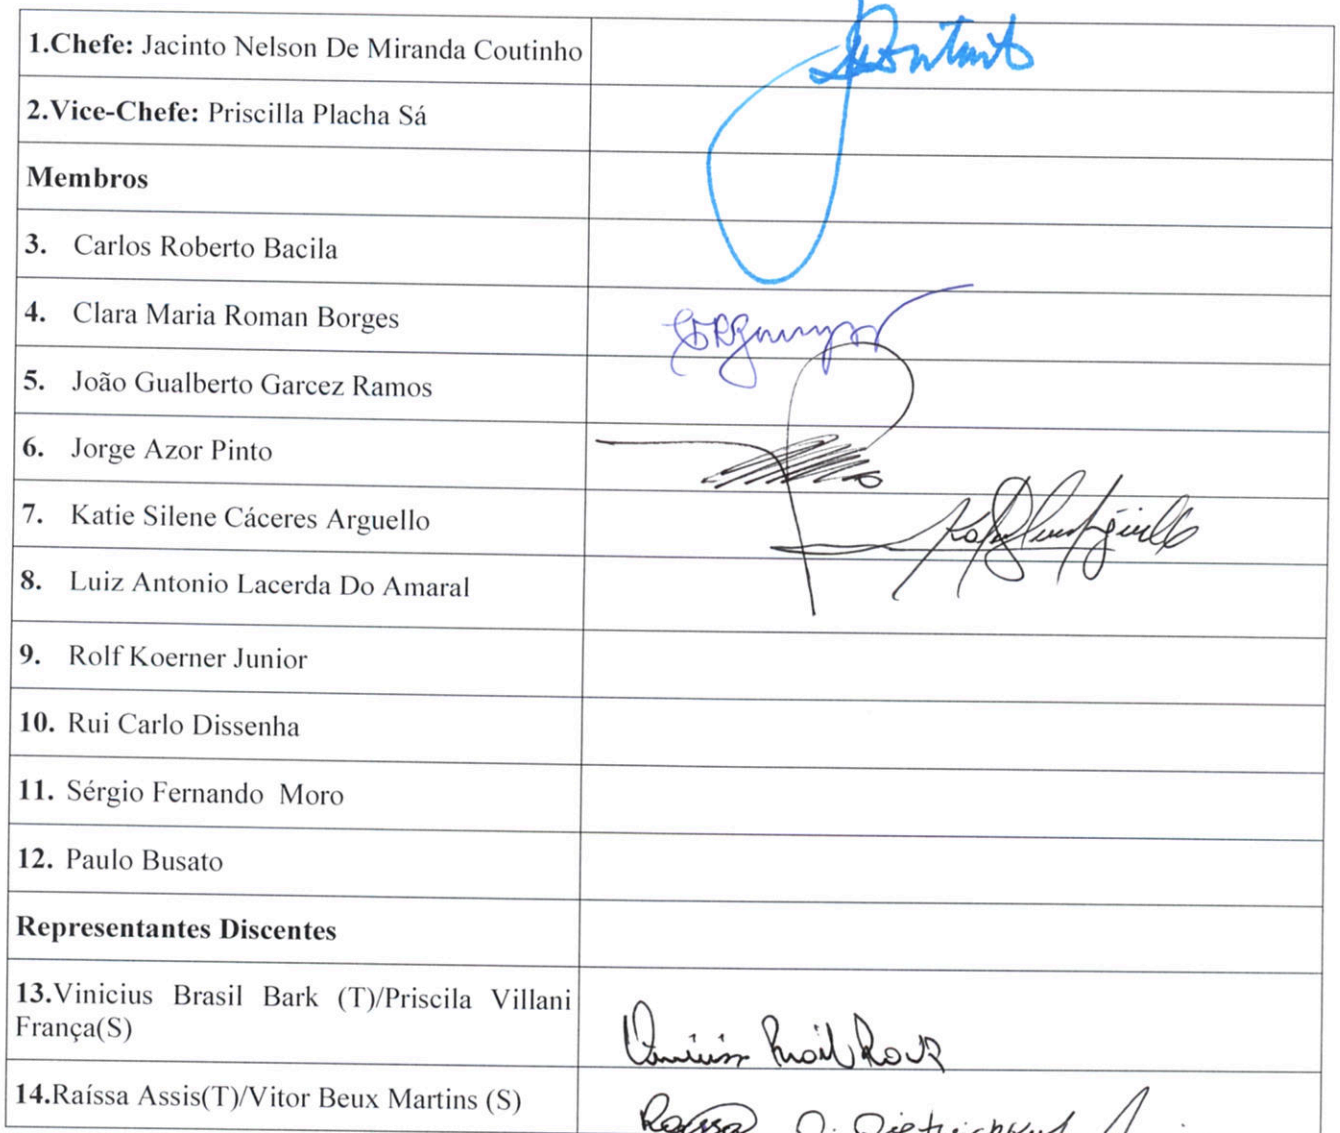 1.Chefe: Jacinto Nelson De Miranda Coutinho
2.Vice-Chefe: Priscilla Placha Sá
Membros
3. Carlos Roberto Bacila
4. Clara Maria Roman Borges
5. João Gualberto Garcez Ramos
6. Jorge Azor Pinto
7. Katie Silene Cáceres Arguello
8. Luiz Antonio Lacerda Do Amaral
9. Rolf Koerner Junior
10. Rui Carlo Dissenha
11. Sérgio Fernando Moro
12. Paulo Busato
Representantes Discentes
13.Vinicius Brasil Bark (T)/Priscila Villani
França(S)
14.Raíssa Assis(T)/Vitor Beux Martins (S)